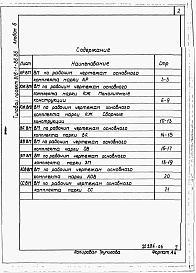 2
Содержание
Лист
Наименование
Стр
ВМ по рабочим чертежам основного
комплекта марки АР
3-5
ВМ по рабочим чертежам основного
комплекта марки КЖ Монолитные
конструкции
6-9
ВМ по рабочим чертежам основного
комплекта марки КЖ Сборные
конструкции
10-13
ВМ по рабочим чертежам основного
комплекта марки ВК
14-15
ВМ по рабочим чертежам основного
комплекта марки ОВ
16-17
ВМ по рабочим чертежам основного
комплекта марки ЭП
18-19
ВМ по рабочим чертежам основного
комплекта марки АОВ
20
ВМ по рабочим чертежам основного
комплекта марки СС
21
Копировал
Формат А4